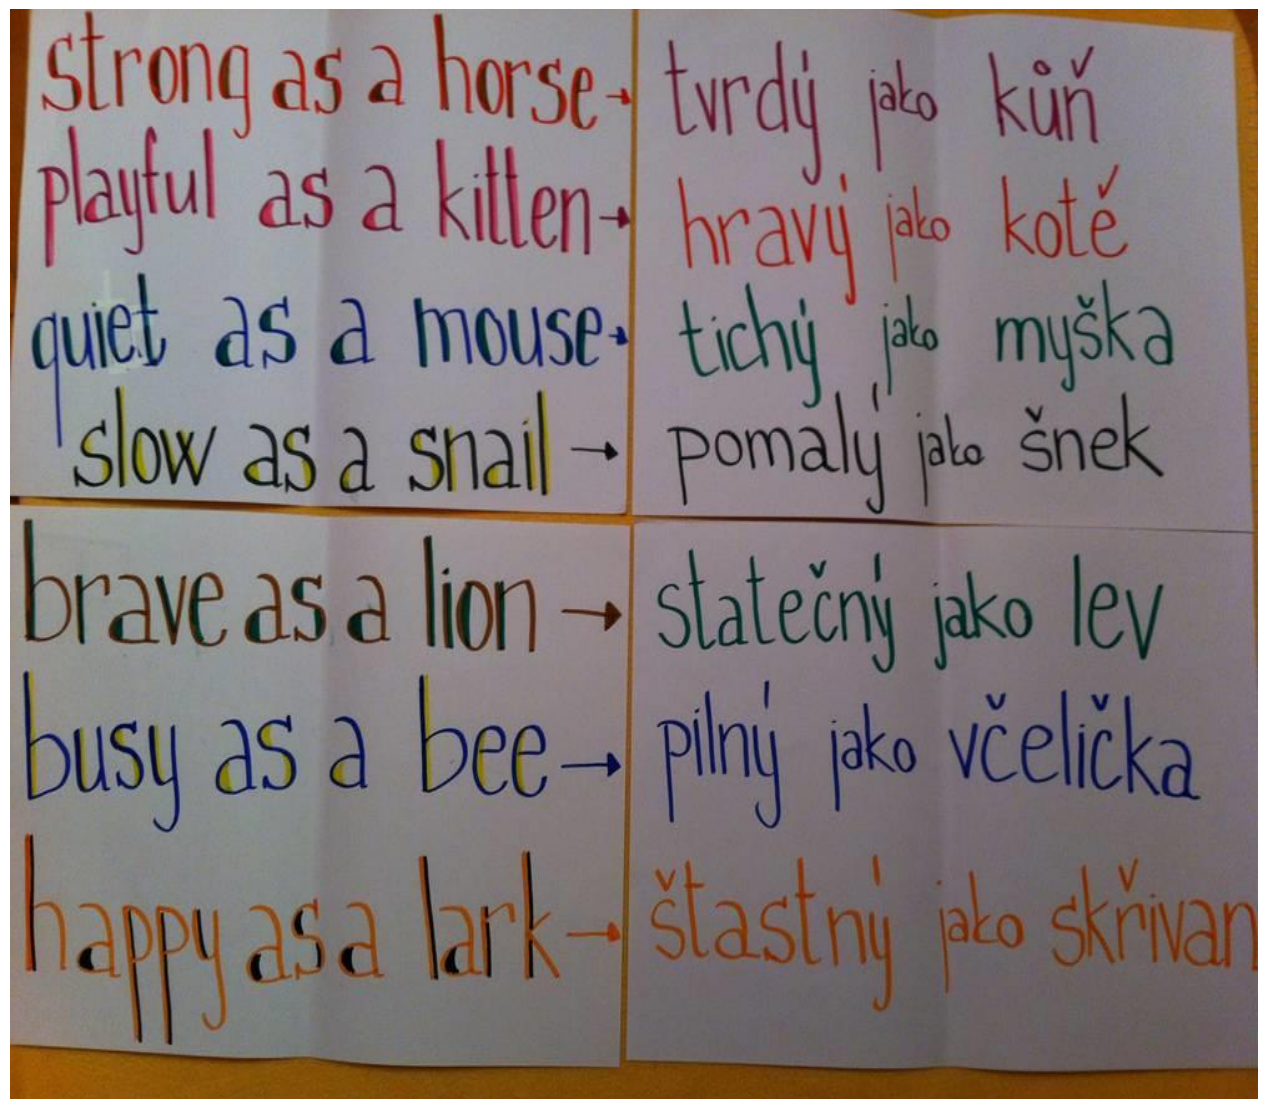 strong as a horse → tvrdý jako kůň
playful as a kitten → hravý jako kotě
quiet as a mouse → tichý jako myška
slow as a snail → pomalý jako šnek
brave as a lion → statečný jako lev
busy as a bee → pilný jako včelička
happy as a lark → štastný jako skřivan